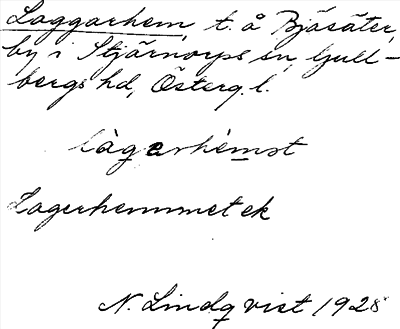 Laggarhem, t. å Bjäsäter,
by i Stjärnorps sn, Gull-
bergs hd, Österg. l.
làgarhèmst
Lagerhemmet ek
N. Lindqvist 1928